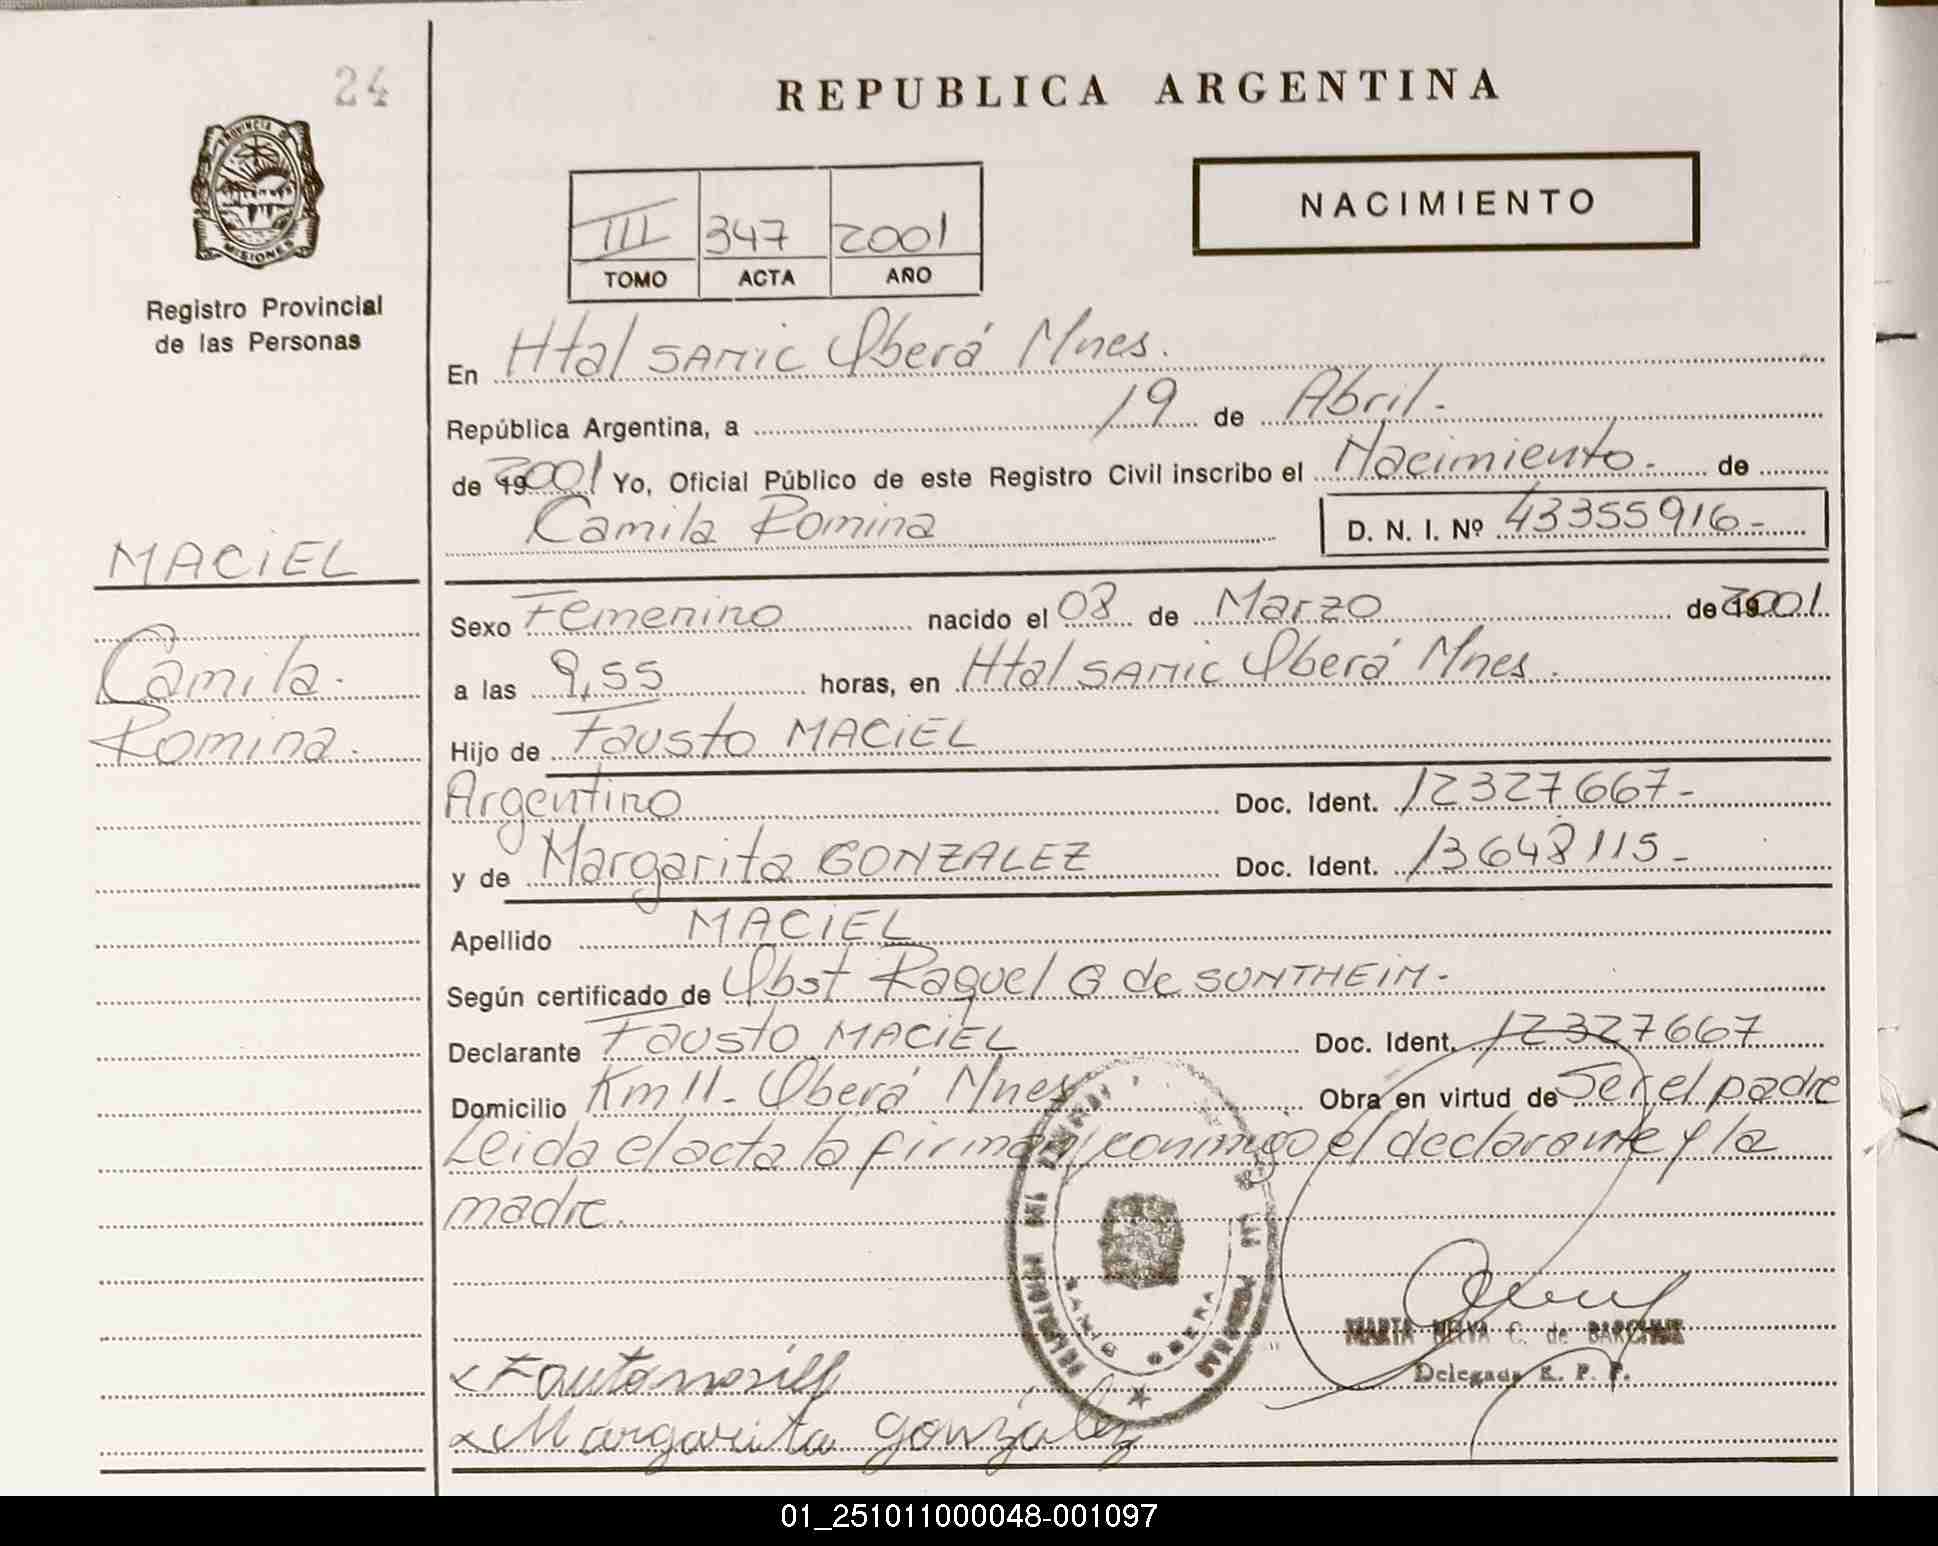 24
REPUBLICA ARGENTINA
PROVINCIA DE
MISIONES
Registro Provincial
de las Personas
NACIMIENTO
III 347 2001
TOMO ACTA AÑO
En Htal SAMIC Oberá Mnes.
República Argentina, a 19 de Abril.-
de 192001 Yo, Oficial Público de este Registro Civil inscribo el Nacimiento.- de
Camila Romina D. N. I. Nº 43355916.-
MACIEL
Camila.
Romina.
Sexo Femenino nacido el 08 de Marzo de 192001.
a las 9,55 horas, en Htal SAMIC Oberá Mnes.
Hijo de Fausto MACIEL
Argentino Doc. Ident. 12327667-
y de Margarita GONZALEZ Doc. Ident. 13648115-
Apellido MACIEL
Según certificado de Obst Raquel G de SONTHEIM-
Declarante Fausto MACIEL Doc. Ident. 12327667
Domicilio Km 11- Oberá Mnes Obra en virtud de Ser el padre
Leida el acta la firman conmigo el declarante y la
madre.
SAMIC OBERA
MARTA C. de
Delegada R. P. P.
x Margarita gonzalez
01_251011000048-001097